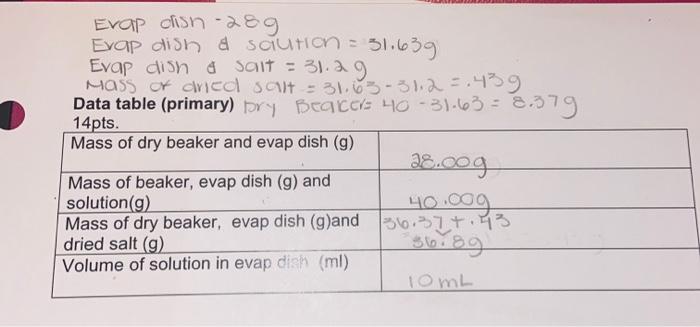 Evap dish - 28g
Evap dish & solution = 31.63g
Evap dish & salt = 31.2g
Mass of dried salt = 31.63-31.2 = .43g
Data table (primary) Dry Beaker = 40-31.63 = 8.37g
14pts.
Mass of dry beaker and evap dish (g)
28.00g
Mass of beaker, evap dish (g) and
solution(g)
40.00g
Mass of dry beaker, evap dish (g)and
36.37+.43
dried salt (g)
36.8g
Volume of solution in evap dish (ml)
10mL